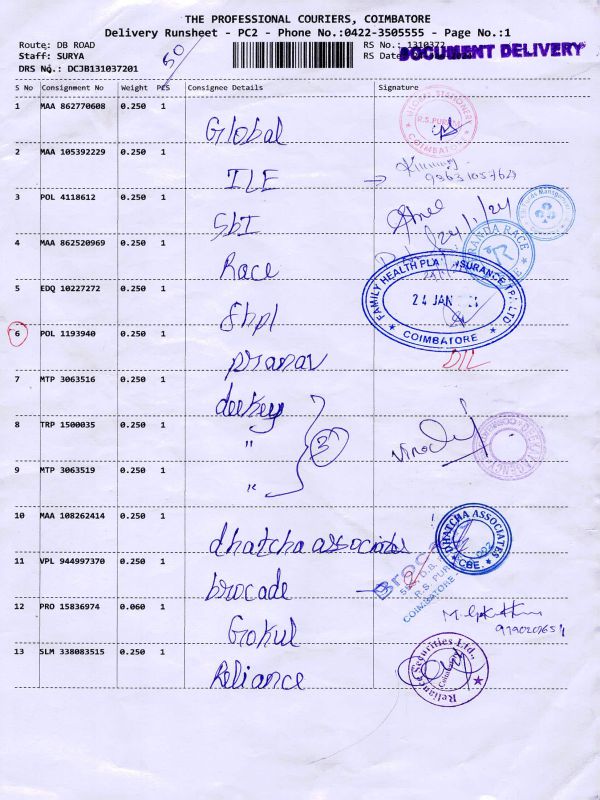 THE PROFESSIONAL COURIERS, COIMBATORE
Delivery Runsheet - PC2 - Phone No.:0422-3505555 - Page No.:1
Route: DB ROAD
RS No.: 1310372
50
Staff: SURYA
RS Date
DOCUMENT DELIVERY
DRS No.: DCJB131037201
S No Consignment No Weight PCS Consignee Details Signature
1 MAA 862770608 0.250 1 Global
R.S. PURAM COIMBATORE
2 MAA 105392229 0.250 1 ILE
3 POL 4118612 0.250 1 SbI
24/1/24
4 MAA 862520969 0.250 1 Race
5 EDQ 10227272 0.250 1 fhpl
FAMILY HEALTH PLAN INSURANCE TPA LTD
24 JAN
COIMBATORE
6 POL 1193940 0.250 1 pranav
7 MTP 3063516 0.250 1 deekey
8 TRP 1500035 0.250 1 "
3
9 MTP 3063519 0.250 1 "
10 MAA 108262414 0.250 1 dhatcha associates
DHATCHA ASSOCIATES CBE.
11 VPL 944997370 0.250 1 brocade
COIMBATORE
12 PRO 15836974 0.060 1 Gokul
13 SLM 338083515 0.250 1 Reliance
Reliance Securities Ltd., Coimbatore